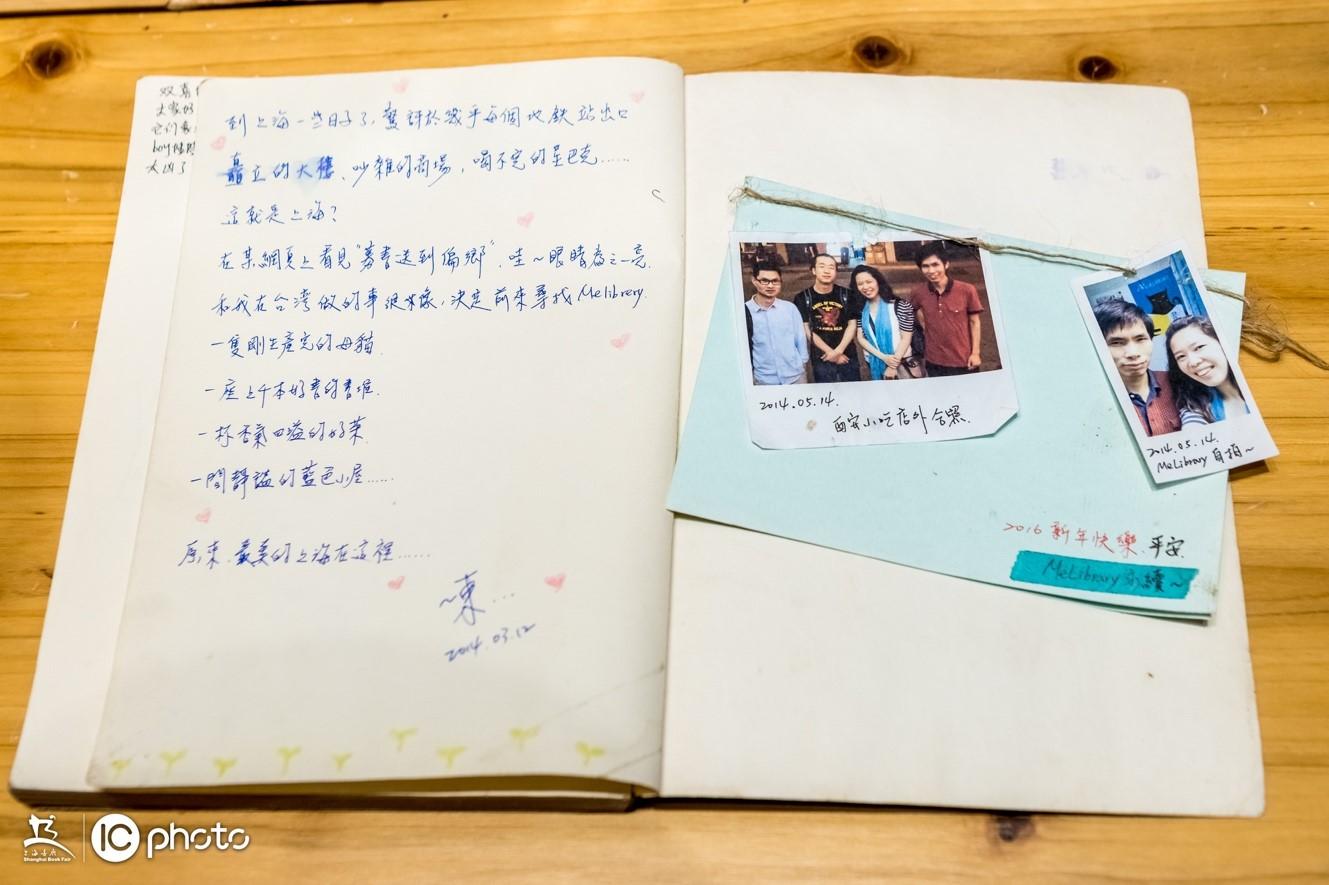 到上海一些日子了,驚訝於幾乎每個地鉄站出口
矗立的大樓、吵雜的商場,喝不完的星巴克……
這就是上海?
在某網頁上看見"募書送到偏鄉",哇~眼睛為之一亮.
和我在台灣做的事很像,決定前來尋找Melibrery.
一隻剛生產完的母貓
一座上千本好書的書堆
一杯香氣四溢的好茶
一間靜謐的藍色小屋……
原來.最美的上海在這裡……
~陳...
2014.03.12
太凶了
2014.05.14.
西安小吃店外合照.
2014.05.14.
MeLibrary自拍~
2016新年快樂.平安.
MeLibrary永續~
上海书展
Shanghai Book Fair
IC photo